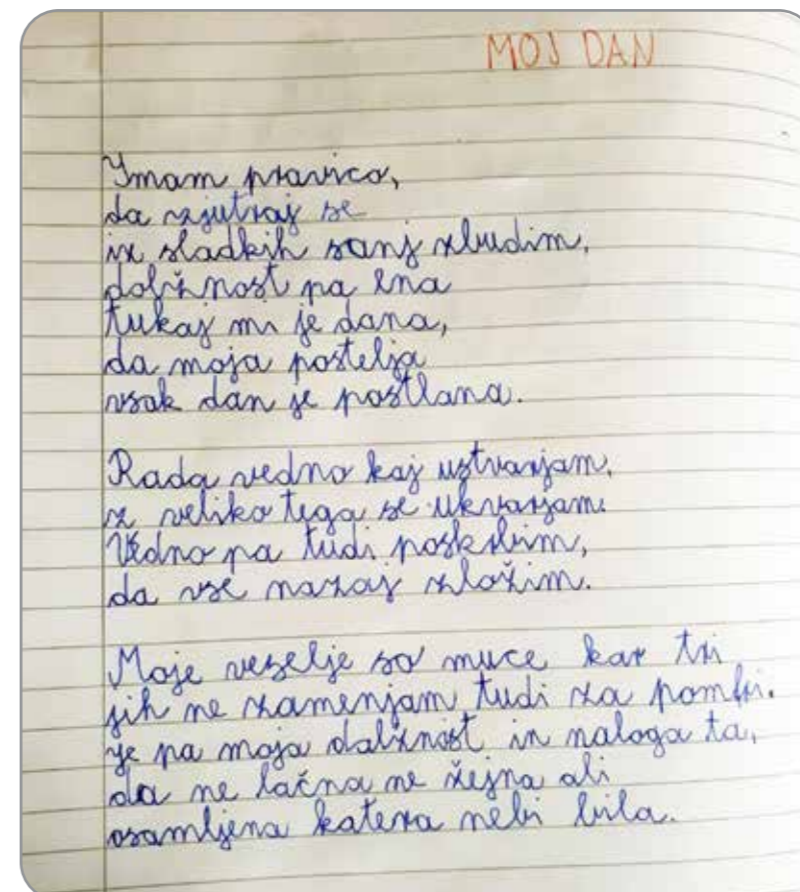 MOJ DAN
Imam pravico,
da zjutraj se
iz sladkih sanj zbudim,
dolžnost pa ena
tukaj mi je dana,
da moja postelja
vsak dan je postlana.
Rada vedno kaj ustvarjam,
z veliko tega se ukvarjam.
Vedno pa tudi poskrbim,
da vse nazaj zložim.
Moje veselje so muce kar tri
jih ne zamenjam tudi za pomfri.
je pa moja dolžnost in naloga ta,
da ne lačna ne žejna ali
osamljena katera nebi bila.